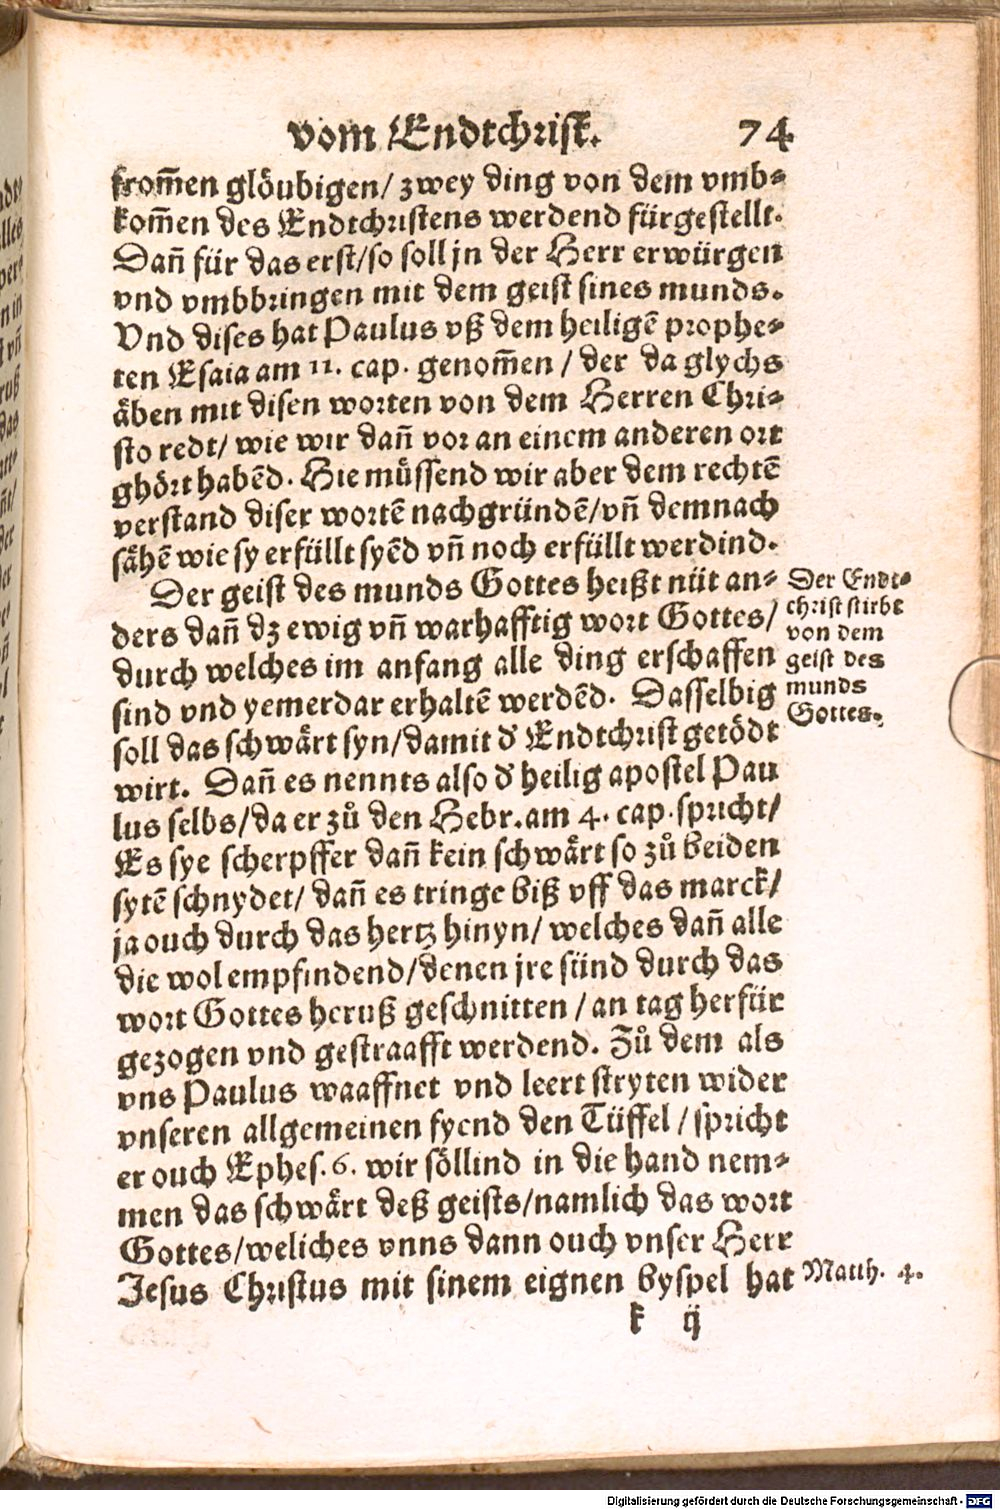 vom Endtchrist. 74
from̄en glöubigen/ zwey ding von dem vmb⸗
kom̄en des Endtchristens werdend fürgestellt.
Dañ für das erst/so soll jn der Herr erwürgen
vnd vmbbringen mit dem geist sines munds.
Vnd dises hat Paulus vß dem heiligē prophe⸗
ten Esaia am 11. cap. genom̄en / der da glychs
äben mit disen worten von dem Herren Chri⸗
sto redt/ wie wir dañ vor an einem anderen ort
ghört habēd. Hie müssend wir aber dem rechtē
verstand diser wortē nachgründē/vñ demnach
sähē wie sy erfüllt syēd vñ noch erfüllt werdind.
Der geist des munds Gottes heißt nüt an⸗
ders dañ dz ewig vñ warhafftig wort Gottes/
durch welches im anfang alle ding erschaffen
sind vnd yemerdar erhaltē werdēd. Dasselbig
soll das schwärt syn/damit d' Endtchrist getödt
wirt. Dañ es nennts also d' heilig apostel Pau
lus selbs/da er zů den Hebr. am 4. cap. spricht/
Es sye scherpffer dañ kein schwärt so zů beiden
sytē schnydet/ dañ es tringe biß vff das marck/
ja ouch durch das hertz hinyn/ welches dañ alle
die wol empfindend/denen jre sünd durch das
wort Gottes heruß geschnitten / an tag herfür
gezogen vnd gestraafft werdend. Zů dem als
vns Paulus waaffnet vnd leert stryten wider
vnseren allgemeinen fyend den Tüffel / spricht
er ouch Ephes. 6. wir söllind in die hand nem⸗
men das schwärt deß geists/namlich das wort
Gottes/weliches vnns dann ouch vnser Herr
Jesus Christus mit sinem eignen byspel hat
k ij
Der Endt⸗
christ stirbt
von dem
geist des
munds
Gottes.
Matth. 4.
Digitalisierung gefördert durch die Deutsche Forschungsgemeinschaft - DFG